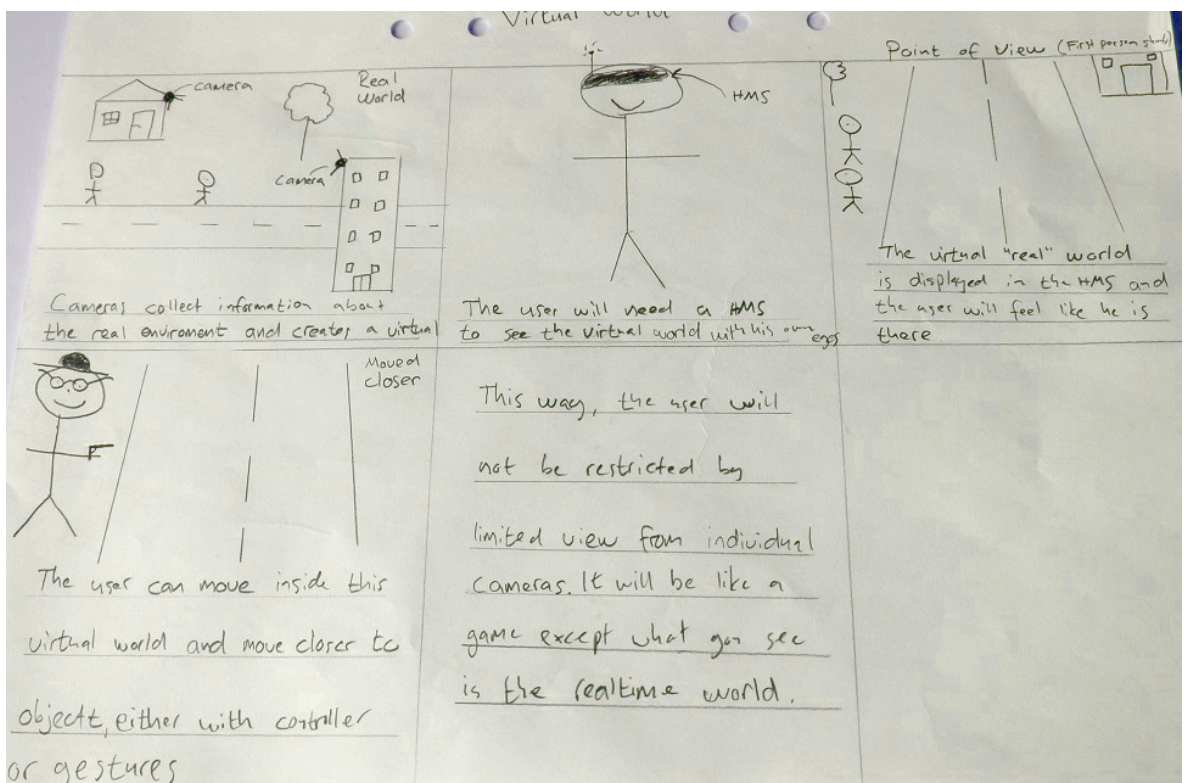 Virtual World
camera
Real
World
camera
Cameras collect information about
the real enviroment and creates a virtual
HMS
The user will need a HMS
to see the virtual world with his own
eyes
Point of View (First person
The virtual "real" world
is displayed in the HMS and
the user will feel like he is
there
Moved
closer
The user can move inside this
virtual world and move closer to
object, either with controller
or gestures
This way, the user will
not be restricted by
limited view from individual
cameras. It will be like a
game except what you see
is the realtime world.